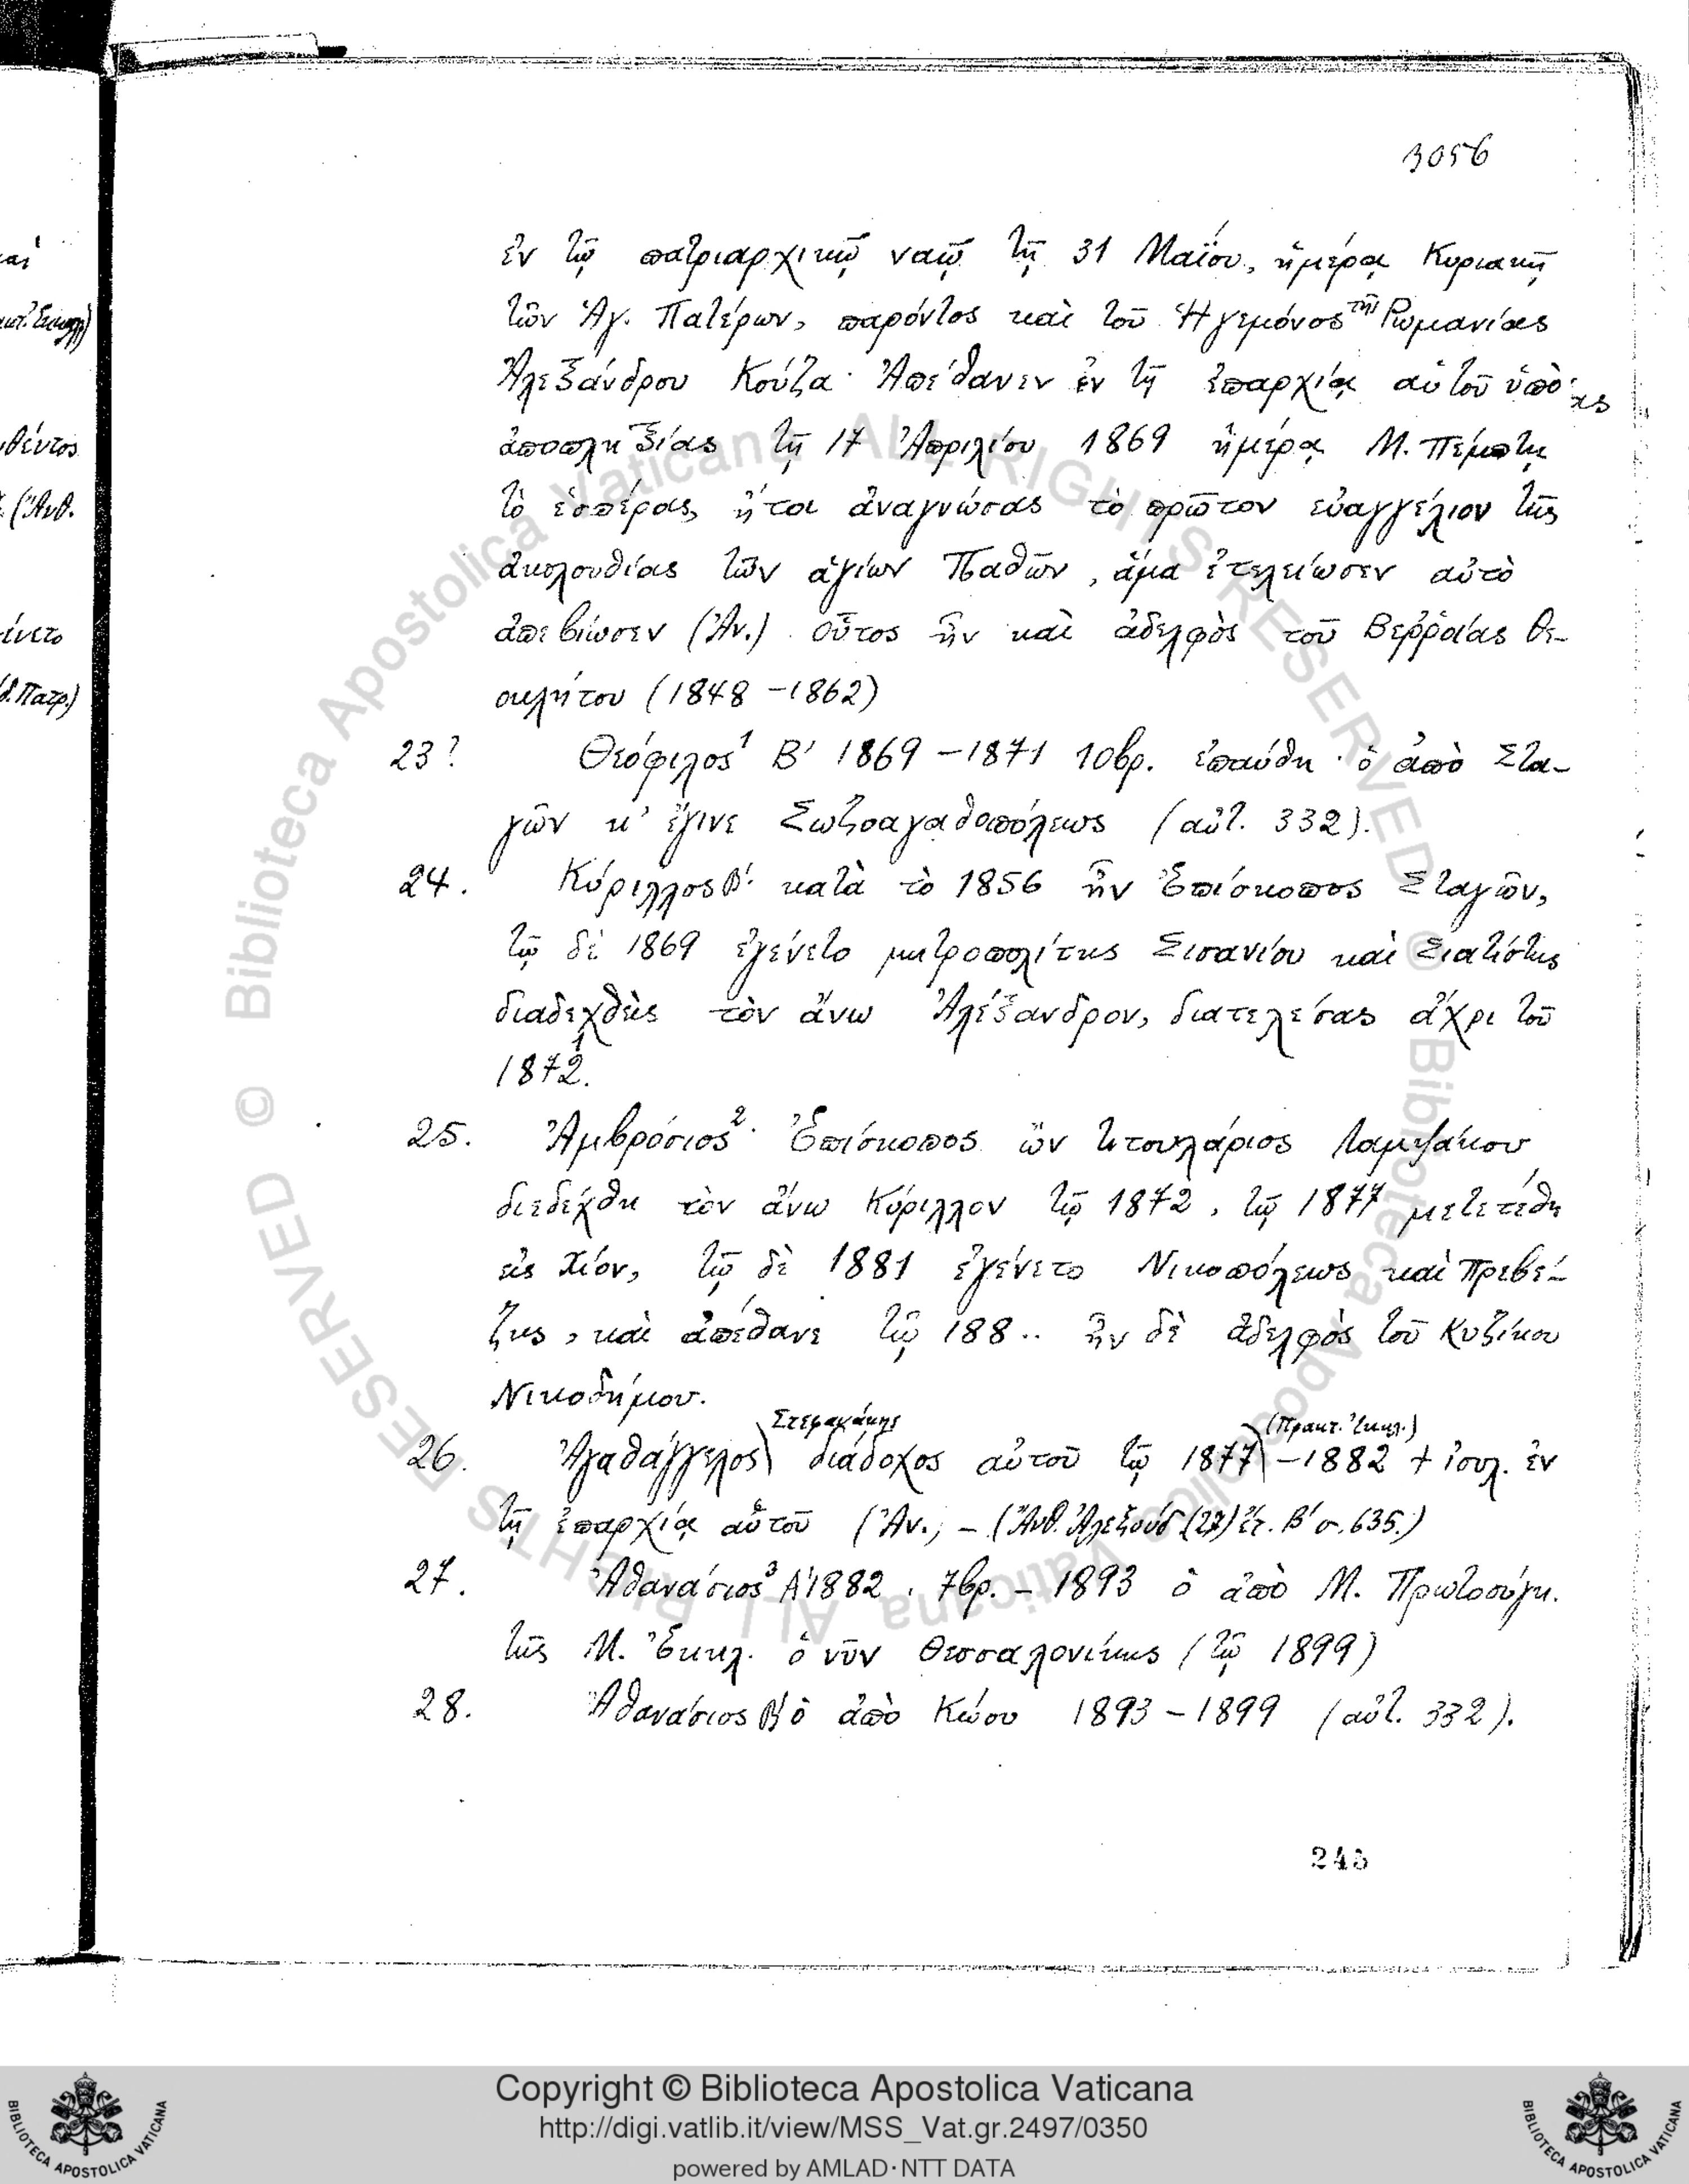 3056
ἐν τῷ πατριαρχικῷ ναῷ τῇ 31 Μαΐου, ἡμέρᾳ Κυριακῇ
τῶν Ἁγ. Πατέρων, παρόντος καὶ τοῦ Ἡγεμόνος τῆς Ρωμανίας
Ἀλεξάνδρου Κούζα· Ἀπέθανεν ἐν τῇ ἐπαρχίᾳ αὐτοῦ ὑπὸ
ἀποπληξίας τῇ 17 Ἀπριλίου 1869 ἡμέρᾳ Μ. Πέμπτῃ
τὸ ἑσπέρας, ἤτοι ἀναγνώσας τὸ πρῶτον εὐαγγέλιον τῆς
ἀκολουθίας τῶν ἁγίων Παθῶν, ἅμα ἐτελείωσεν αὐτὸ
ἀπεβίωσεν (Ἀν.) Οὗτος ἦν καὶ ἀδελφὸς τοῦ Βεῤῥοίας Θε-
οκλήτου (1848-1862)
23? Θεόφιλος¹ Β' 1869-1871 10βρ. ἐπαύθη· ὁ ἀπὸ Στα-
γῶν κ' ἔγινε Σωζοαγαθοπόλεως (αὐτ. 332).
24. Κύριλλος Β'. κατὰ τὸ 1856 ἦν Ἐπίσκοπος Σταγῶν,
τῷ δὲ 1869 ἐγένετο μητροπολίτης Σισανίου καὶ Σιατίστης
διαδεχθεὶς τὸν ἄνω Ἀλέξανδρον, διατελέσας ἄχρι τοῦ
1872.
25. Ἀμβρόσιος². Ἐπίσκοπος ὢν τιτουλάριος Λαμψάκου
διεδέχθη τὸν ἄνω Κύριλλον τῷ 1872, τῷ 1877 μετετέθη
εἰς Χίον, τῷ δὲ 1881 ἐγένετο Νικοπόλεως καὶ Πρεβέ-
ζης, καὶ ἀπέθανε τῷ 188.. ἦν δὲ ἀδελφὸς τοῦ Κυζίκου
Νικοδήμου.
Στεφανάκης (Πρακτ. Ἐκκλ.)
26. Ἀγαθάγγελος διάδοχος αὐτοῦ τῷ 1877-1882 + ἰουλ. ἐν
τῇ ἐπαρχίᾳ αὐτοῦ (Ἀν.) - (Ἀνθ. Ἀλεξούδ (27) ἔτ. Β' σ. 635.)
27. Ἀθανάσιος³ Α' 1882. 7βρ. - 1893 ὁ ἀπὸ Μ. Πρωτοσύγκ.
τῆς Μ. Ἐκκλ. ὁ νῦν Θεσσαλονίκης (τῷ 1899)
28. Ἀθανάσιος Β' ὁ ἀπὸ Κώου 1893-1899 (αὐτ. 332).
245
© Biblioteca Apostolica Vaticana ALL RIGHTS RESERVED
Copyright © Biblioteca Apostolica Vaticana
http://digi.vatlib.it/view/MSS_Vat.gr.2497/0350
powered by AMLAD·NTT DATA
BIBLIOTECA APOSTOLICA VATICANA
BIBLIOTECA APOSTOLICA VATICANA